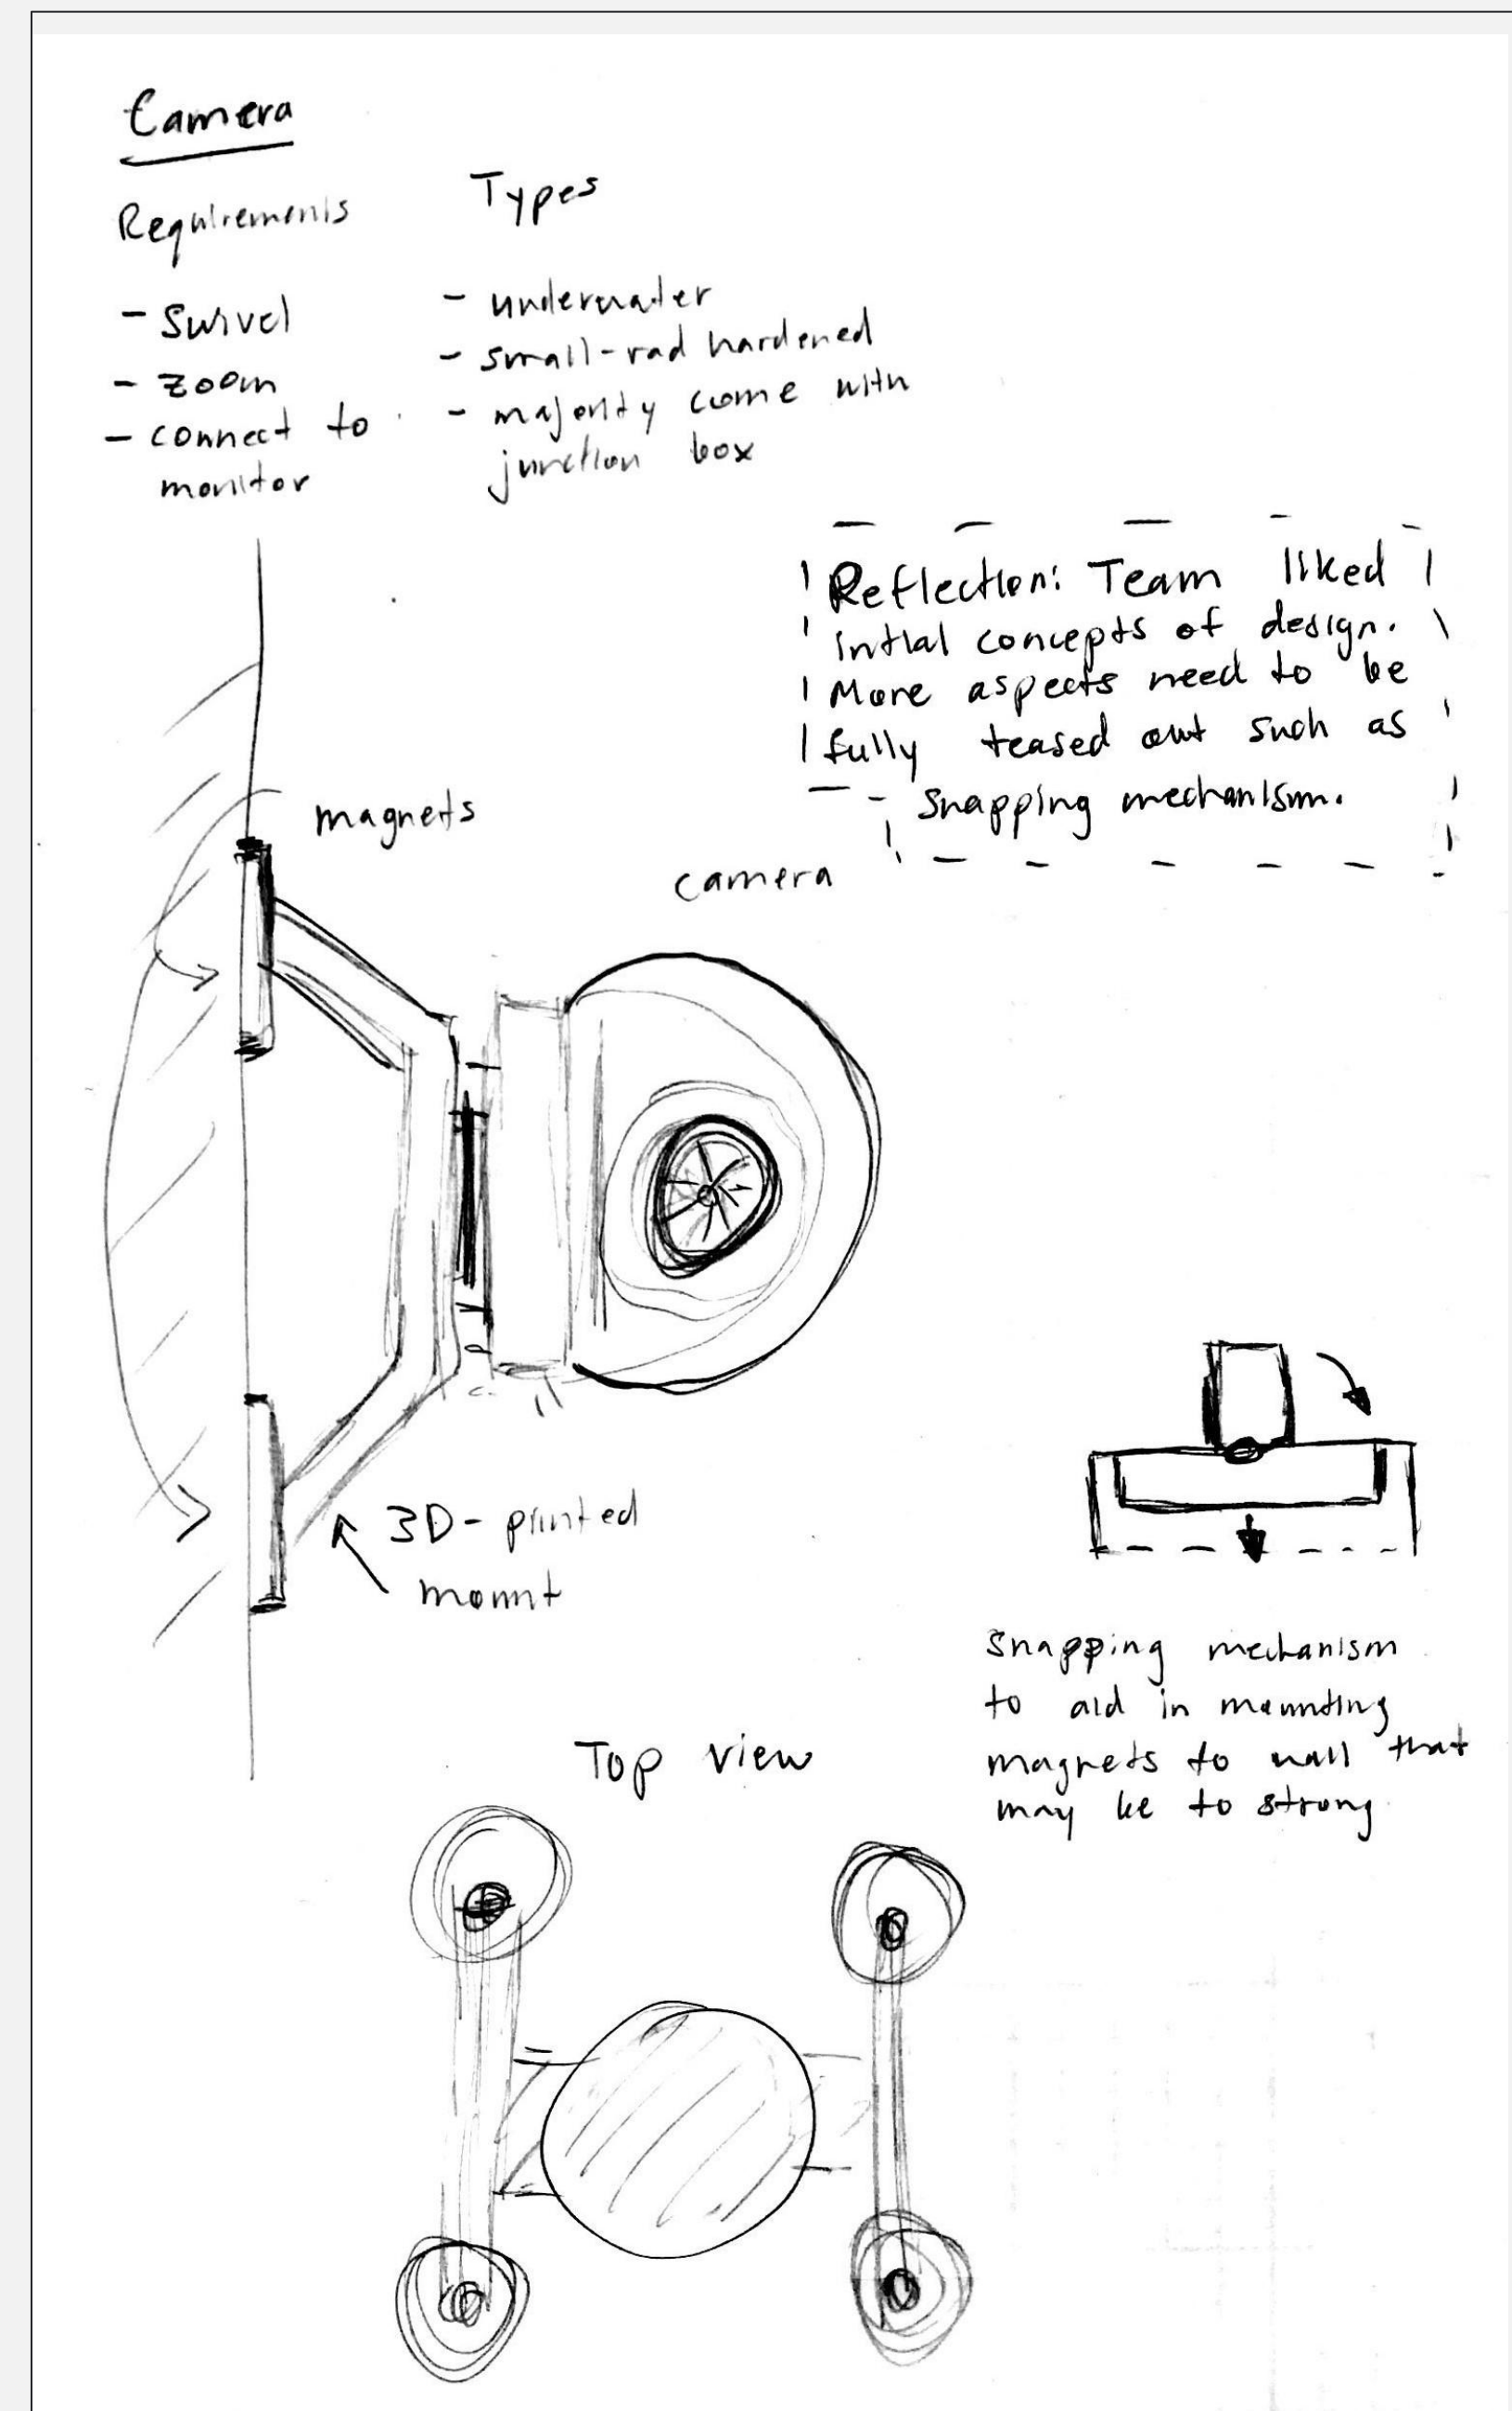 Camera
Requirements
- Swivel
- zoom
- connect to
monitor
Types
- underwater
- small-rad hardened
- majority come with
junction box
Reflection: Team liked
intial concepts of design.
More aspects need to be
fully teased out such as
- snapping mechanism.
magnets
camera
3D-printed
mount
Snapping mechanism
to aid in mounting
magnets to wall that
may be to strong
Top view